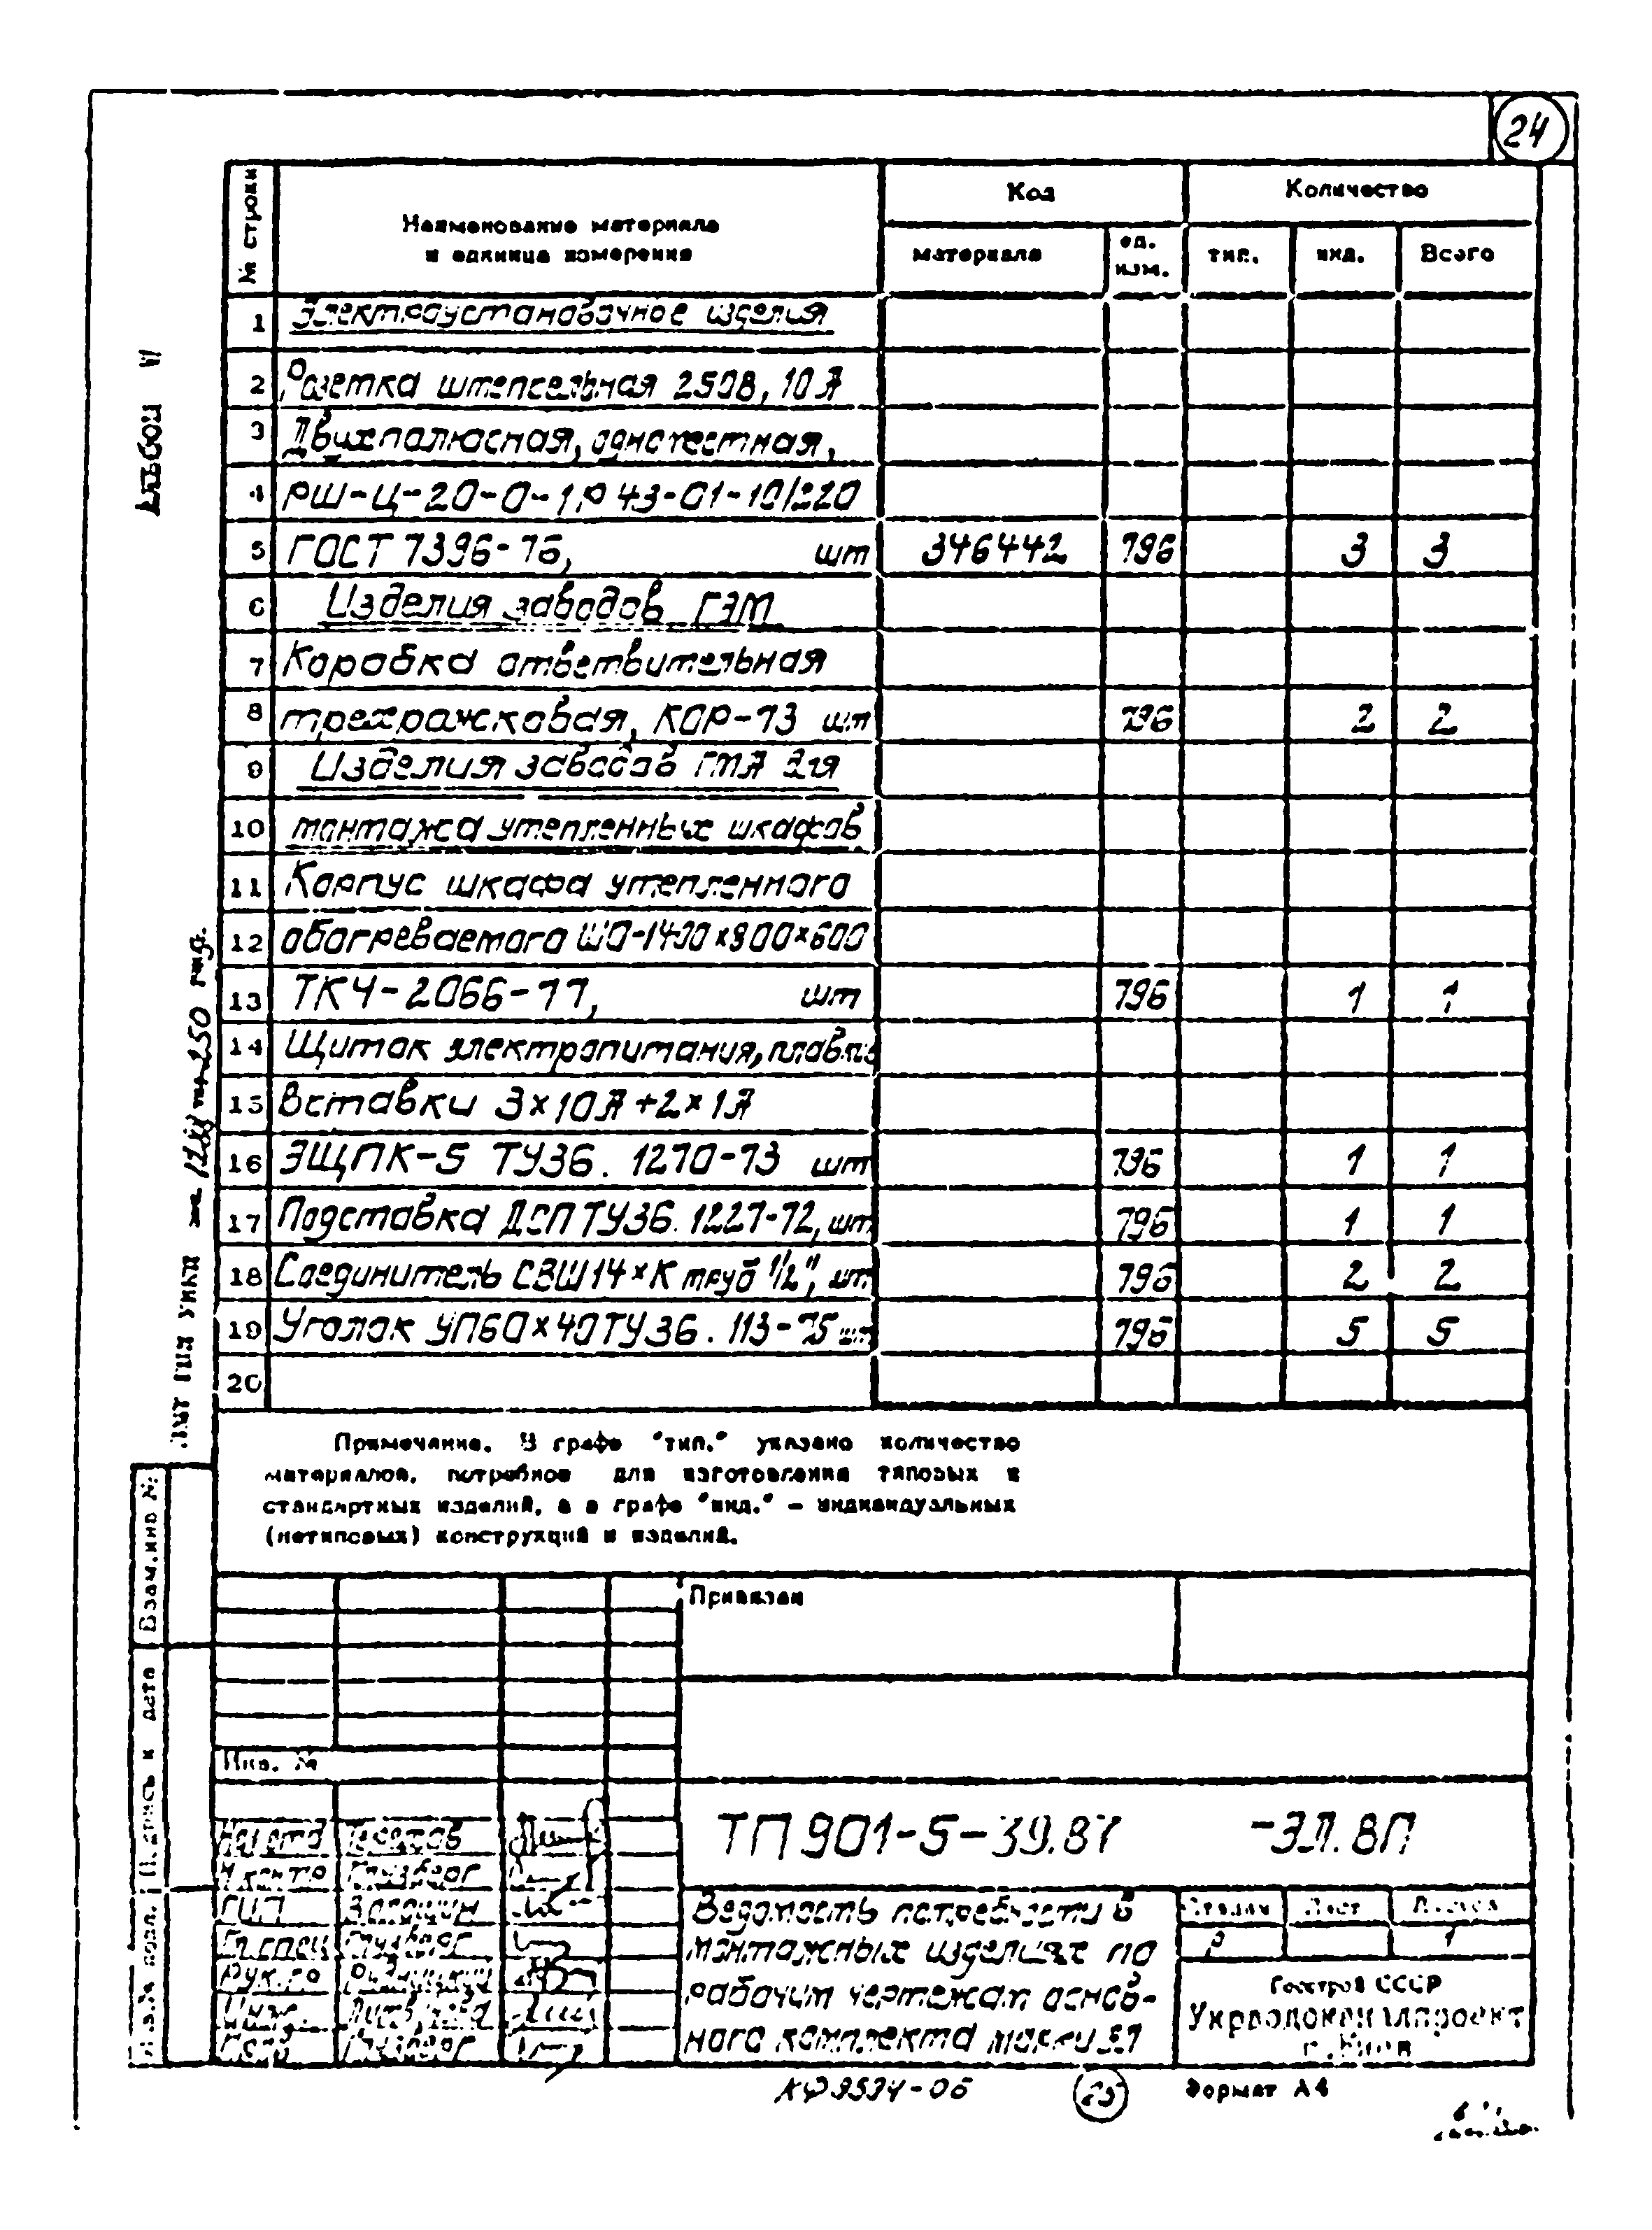 24
№ строки
Наименование материала
и единица измерения
Код
Количество
материала
ед.
изм.
тип.
инд.
Всего
1 Электроустановочное изделия
2 Розетка штепсельная 2508, 10А
3 Двухполюсная, одноместная,
4 РШ-Ц-20-0-1Р43-01-10/220
5 ГОСТ 7396-76, шт 346442 796 3 3
6 Изделия заводов ГЭМ
7 Коробка ответвительная
8 трехрожковая, КОР-73 шт 796 2 2
9 Изделия заводов ГМА для
10 монтажа утепленных шкафов
11 Корпус шкафа утепленного
12 обогреваемого ШО-1400×800×600
13 ТК4-2066-77, шт 796 1 1
14 Щиток электропитания, плавкие
15 Вставки 3×10А+2×1А
16 ЭЩПК-5 ТУ36.1270-73 шт 796 1 1
17 Подставка ДСП ТУ36.1227-72, шт 796 1 1
18 Соединитель СВШ14×К труб 1/2", шт 796 2 2
19 Уголок УП60×40ТУ36.113-75 шт 796 5 5
20
Альбом VI
Примечание. В графе "тип." указано количество
материалов, потребное для изготовления типовых и
стандартных изделий, а в графе "инд." – индивидуальных
(нетиповых) конструкций и изделий.
Взам.инв №
Подпись и дата
Инв.№ подл.
Привязан
Инв. №
ТП 901-5-39.87 -ЭЛ.ВП
Нач.отд
Н.контр Глузберг
ГИП
Гл.спец Глузберг
Рук.гр
Инж.
Глузберг
Ведомость потребности в
монтажных изделиях по
рабочим чертежам основ-
ного комплекта марки ЭЛ
Стадия Лист Листов
Р 1
Госстрой СССР
Укрводоканалпроект
г.Киев
КФ9594-06
25
Формат А4